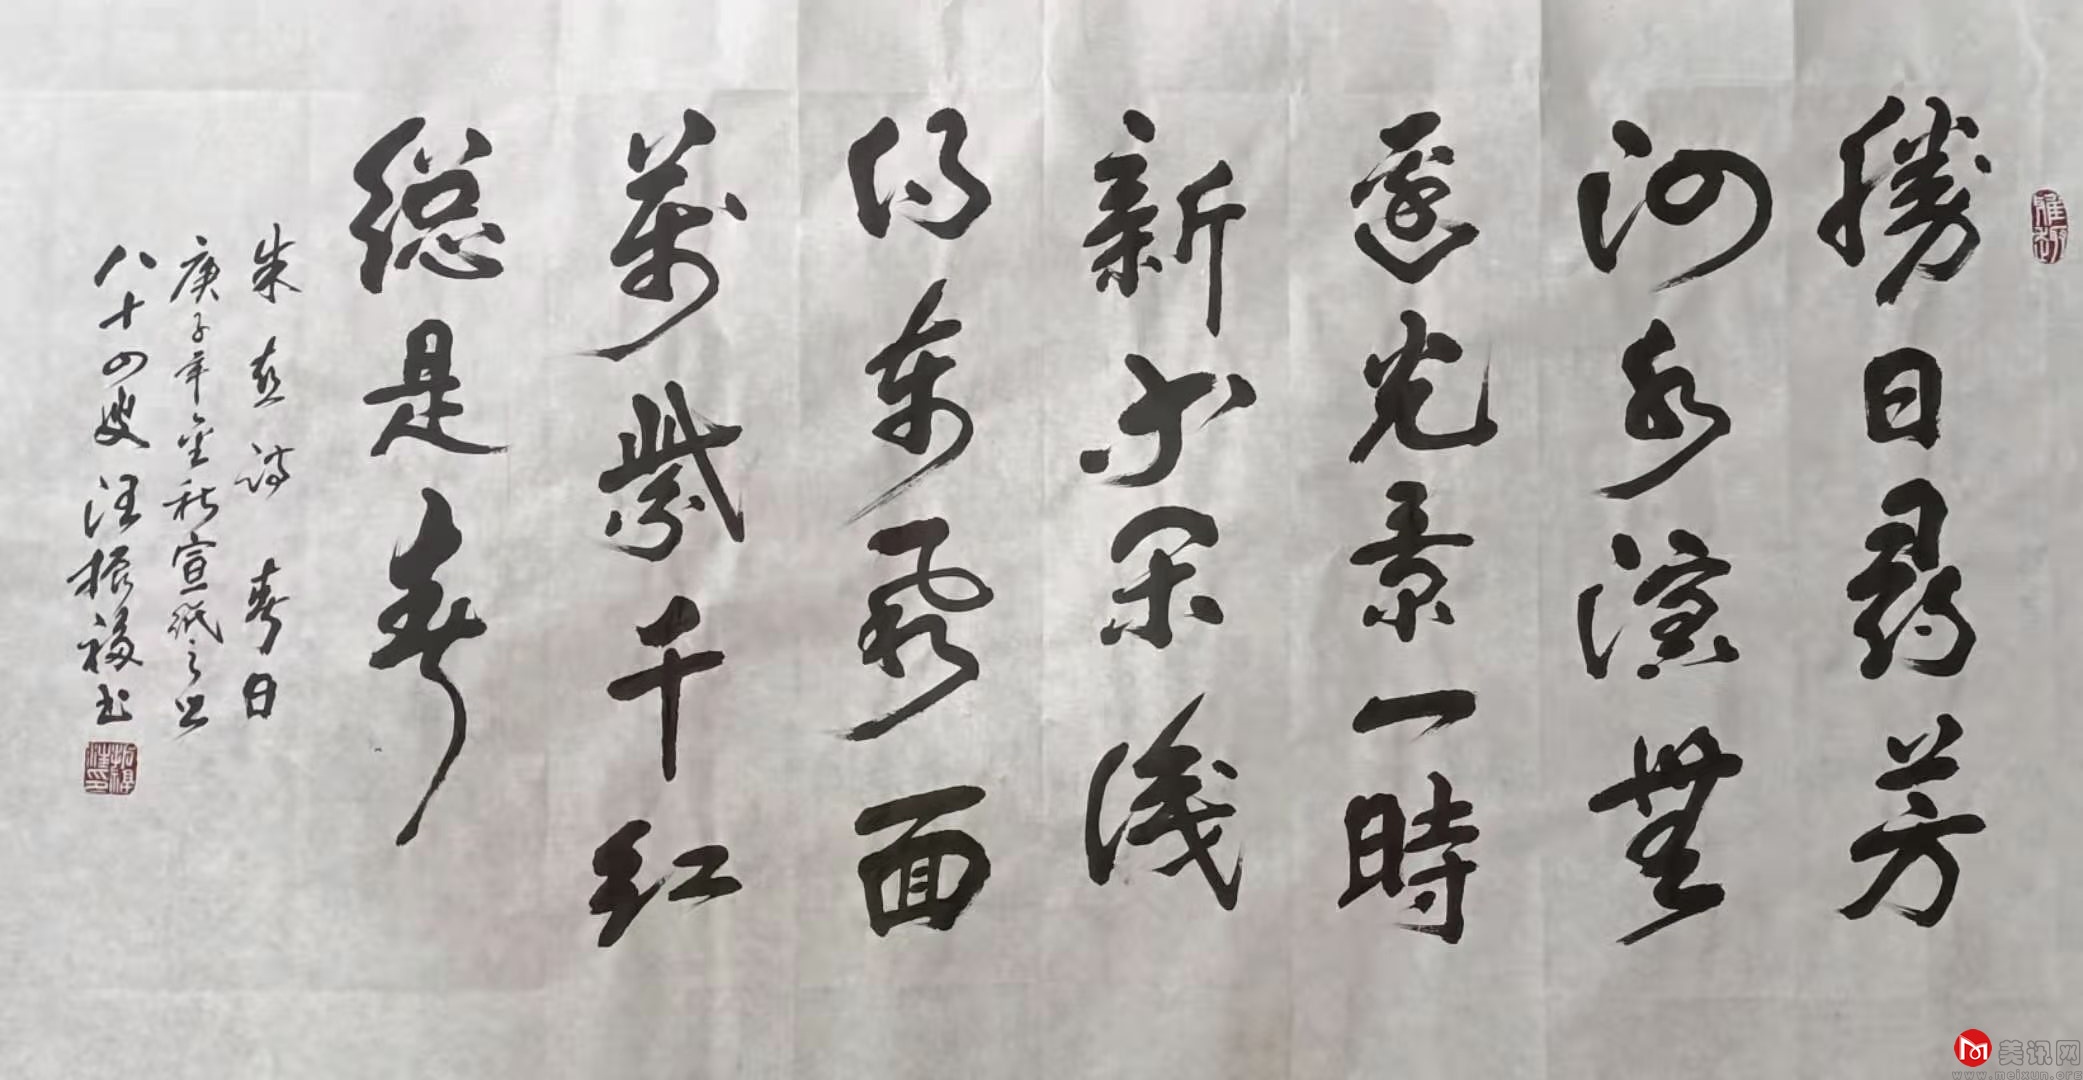 勝日尋芳
泗水濱無
邊光景一時
新等閑識
得東風面
萬紫千紅
總是春
朱熹詩 春日
庚子年金秋宣紙之
八十四叟汪振福书
美讯网
www.meixun.org